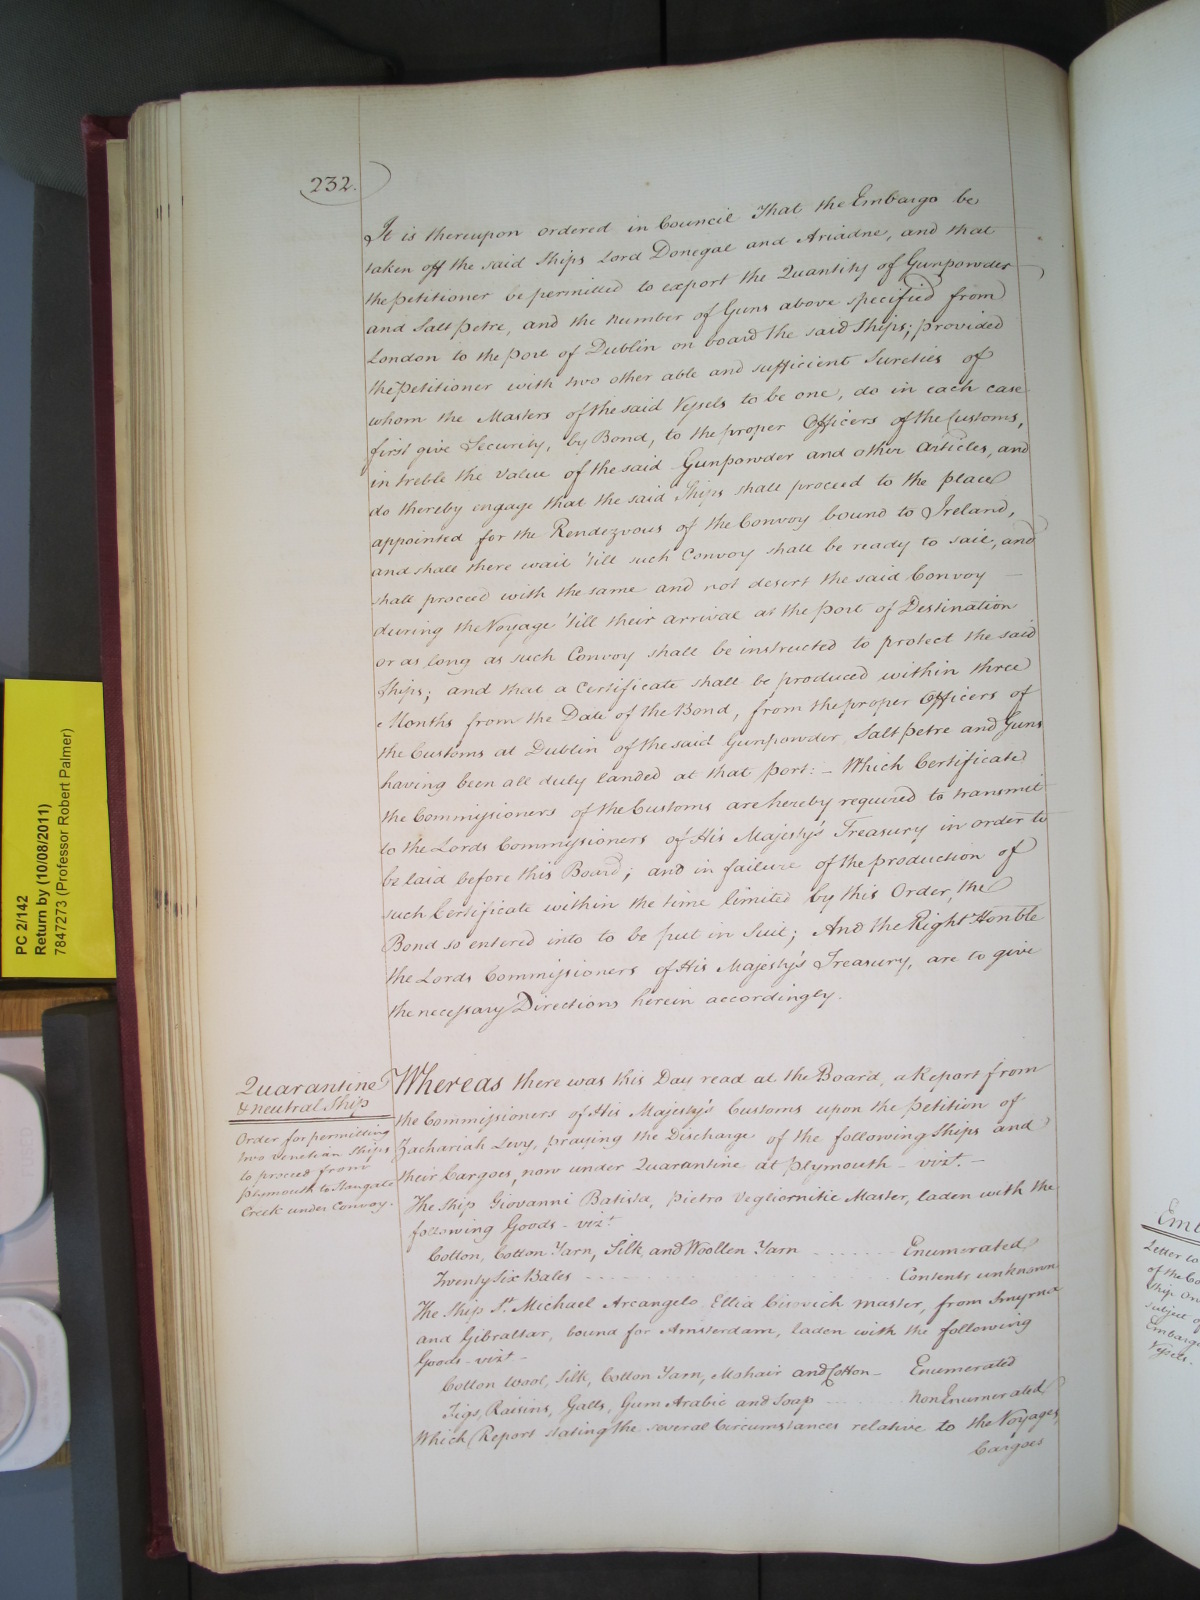 232.
It is thereupon ordered in Council That the Embargo be
taken off the said Ships Lord Donegal and Ariadne, and that
the petitioner be permitted to export the Quantity of Gunpowder
and Salt petre, and the number of Guns above specified from
London to the port of Dublin on board the said Ships; provided
the petitioner with two other able and sufficient Sureties of
whom the Masters of the said Vessels to be one, do in each case
first give Security, by Bond, to the proper Officers of the Customs,
in treble the Value of the said Gunpowder and other Articles, and
do thereby engage that the said Ships shall proceed to the place
appointed for the Rendezvous of the Convoy bound to Ireland,
and shall there wait 'till such Convoy shall be ready to sail, and
shall proceed with the same and not desert the said Convoy
during the Voyage 'till their arrival at the port of Destination
or as long as such Convoy shall be instructed to protect the said
Ships; and that a Certificate shall be produced within three
Months from the Date of the Bond, from the proper Officers of
the Customs at Dublin of the said Gunpowder Salt petre and Guns
having been all duly landed at that port: - Which Certificate
the Commissioners of the Customs are hereby required to transmit
to the Lords Commissioners of His Majesty's Treasury in order to
be laid before this Board; and in failure of the production of
such Certificate within the time limited by this Order, the
Bond so entered into to be put in Suit; And the Right Honble
the Lords Commissioners of His Majesty's Treasury, are to give
the necessary Directions herein accordingly.
Quarantine
& neutral Ship
Order for permitting
two Venetian Ships
to proceed from
plymouth to Stangate
Creek under Convoy.
Whereas there was this Day read at the Board, a Report from
the Commissioners of His Majesty's Customs upon the Petition of
Zachariah Levy, praying the Discharge of the following Ships and
their Cargoes, now under Quarantine at plymouth - vizt. -
The Ship Giovanni Batista, pietro Master, laden with the
following Goods - vizt
Cotton, Cotton Yarn, Silk, and Woollen Yarn ....... Enumerated
Twenty Six Bales .......... Contents unknown
The Ship St. Michael Arcangelo Ellia master, from Smyrna
and Gibraltar, bound for Amsterdam, laden with the following
Goods - vizt -
Cotton Wool, Silk, Cotton Yarn, Mohair and Cotton - Enumerated
Figs, Raisins, Galls, Gum Arabic and Soap ....... Non Enumerated
Which Report stating the several Circumstances relative to the Voyages,
Cargoes
PC 2/142
Return by (10/08/2011)
7847273 (Professor Robert Palmer)
Emb
Letter to
of the Co
Ship
subject of
Embargo
Vessels.